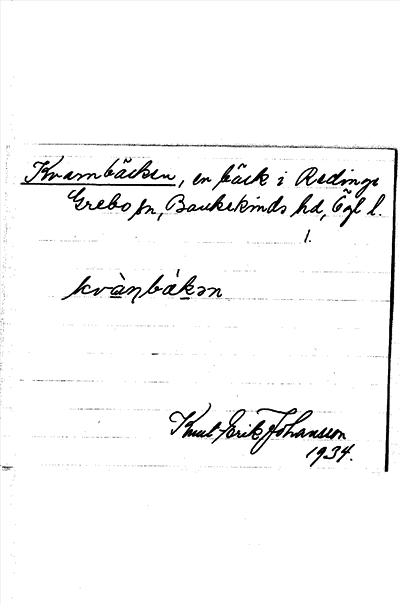 Kvarnbäcken, en bäck i Redinge
Grebo sn, Bankekinds hd, Ögl l.
1.
kvàṇbákən
Knut Erik Johansson
1934.